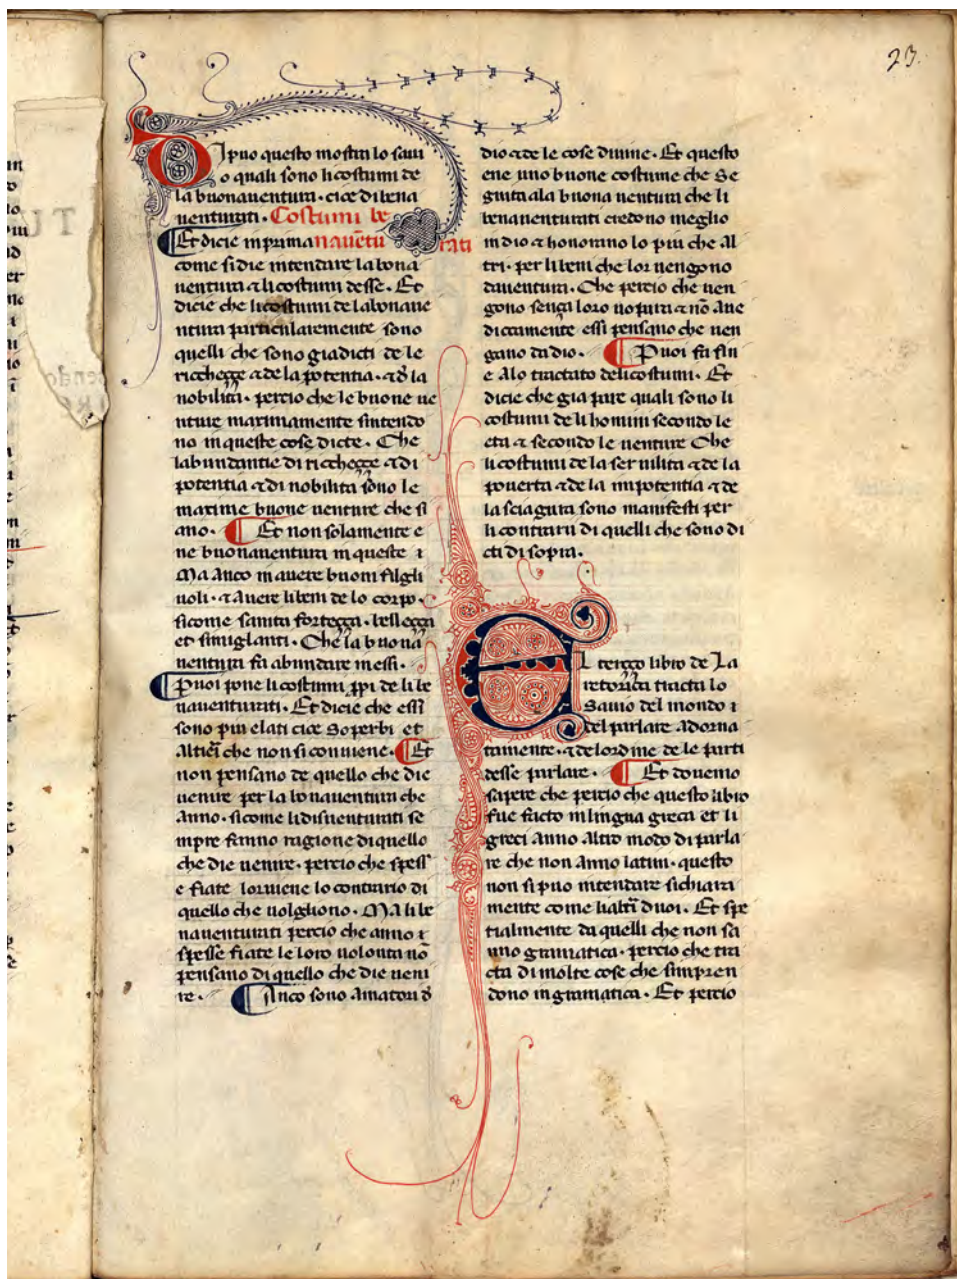 23.
Dipuo questo mostra lo saui
o quali sono li costumi de
la buonauentura · cioe di bena
uenturati · Costumi be
Et dicie in prima nauētu rati
come si die intendare la bona
uentura ⁊ li costumi desse · Et
dicie che li costumi de la bonaue
ntura particularemente sono
quelli che sono giadicti de le
ricchecçe ⁊ de la potentia · ⁊ d̄ la
nobilita · percio che le buone ue
nture maximamente sintendo
no in queste cose dicte · Che
labundantie di ricchecçe ⁊ di
potentia ⁊ di nobilita sono le
maxime buone uenture che si
ano · ¶ Et non solamente e
ne buonauentura in queste ⁊
Ma Anco in auere buoni filgli
uoli · ⁊ Auere li beni de lo corpo ·
sicome sanita forteçça · belleçça
et simiglanti · Che la buona
uentura fa abundare in essi ·
¶ Puoi pone li costumi ꝓpi de li be
nauenturati · Et dicie che essi
sono piu elati cioe Soperbi et
Altieri che non si conuiene · ¶ Et
non pensano de quello che die
uenire per la bonauentura che
anno · sicome li disuenturati se
mpre fanno ragione di quello
che die uenire · percio che spess
e fiate lor uiene lo contrario di
quello che uolgliono · Ma li be
nauenturati percio che anno ⁊
spesse fiate le loro uolonta nō
pensano di quello che die ueni
re · ¶ Anco sono Amatori d̄
dio ⁊ de le cose diuine · Et questo
ene uno buone costume che Se
guita ala buona uentura che li
benauenturati credono meglio
in dio ⁊ honorano lo piu che Al
tri · per li beni che lor uengono
dauentura · Che percio che uen
gono sença loro uopura ⁊ nō Aue
dictamente essi pensano che uen
gano da dio · ¶ Puoi fa fin
e Alo tractato deli costumi · Et
dicie che gia pare quali sono li
costumi de li homini secondo le
eta ⁊ secondo le uenture Che
li costumi de la seruilita ⁊ de la
pouerta ⁊ de la impotentia ⁊ de
la sciagura sono manifesti per
li contrarii di quelli che sono di
cti di sopra ·
El terço libro de La
retorica tracta lo
Sauio del mondo ⁊
del parlare Adorna
tamente · ⁊ de lordine de le parti
desse parlare · ¶ Et douemo
sapere che percio che questo libro
fue facto in lingua greca et li
greci Anno Altro modo di parla
re che non Anno latini · questo
non si puo intendare si chiara
mente come li altri duoi · Et spe
tialmente da quelli che non sa
nno gramatica · percio che tra
cta di molte cose che simpren
dono in gramatica · Et percio